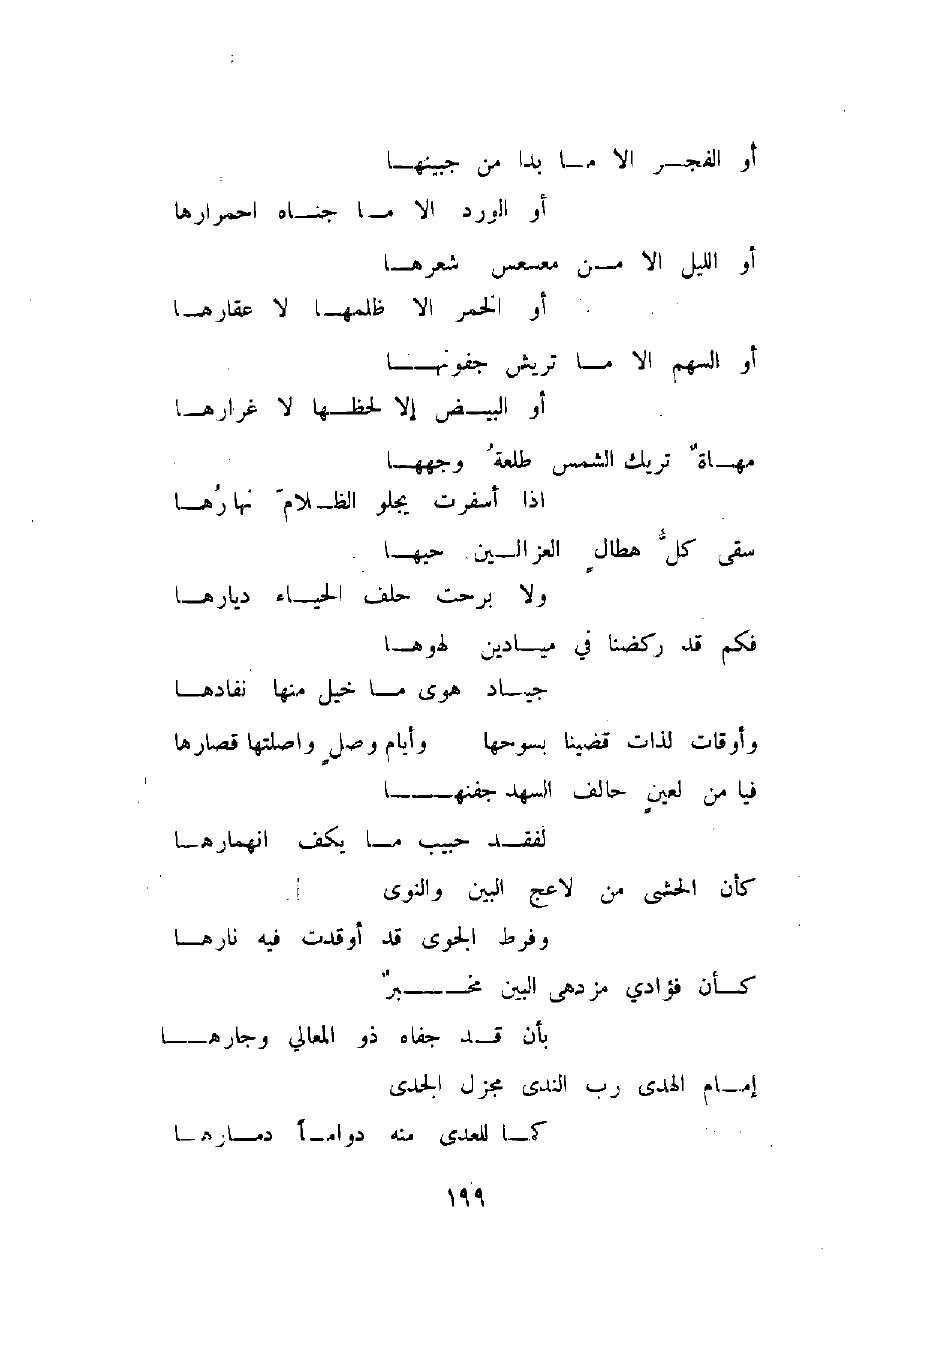 أو الفجر الا ما بدا من جبينها
أو الورد الا ما جناه احمرارها
أو الليل الا من معسعس شعرها
أو الخمر الا ظلمها لا عقارها
أو السهم الا ما تريش جفونها
أو البيض إلا لحظها لا غرارها
مهاةٌ تريك الشمس طلعةُ وجهها
اذا أسفرت يجلو الظلامَ نهارُها
سقى كلُّ هطالٍ العزالين حيها
ولا برحت حلف الحياء ديارها
فكم قد ركضنا في ميادين لهوها
جياد هوى ما خيل منها نفادها
وأوقات لذات قضينا بسوحها وأيام وصلٍ واصلتها قصارها
فيا من لعينٍ حالف السهد جفنها
لفقد حبيب ما يكف انهمارها
كأن الحشى من لاعج البين والنوى
وفرط الجوى قد أوقدت فيه نارها
كأن فؤادي مزدهى البين مخبرٌ
بأن قد جفاه ذو المعالي وجارها
إمام الهدى رب الندى مجزل الجدى
كما للعدى منه دواماً دمارها
١٩٩